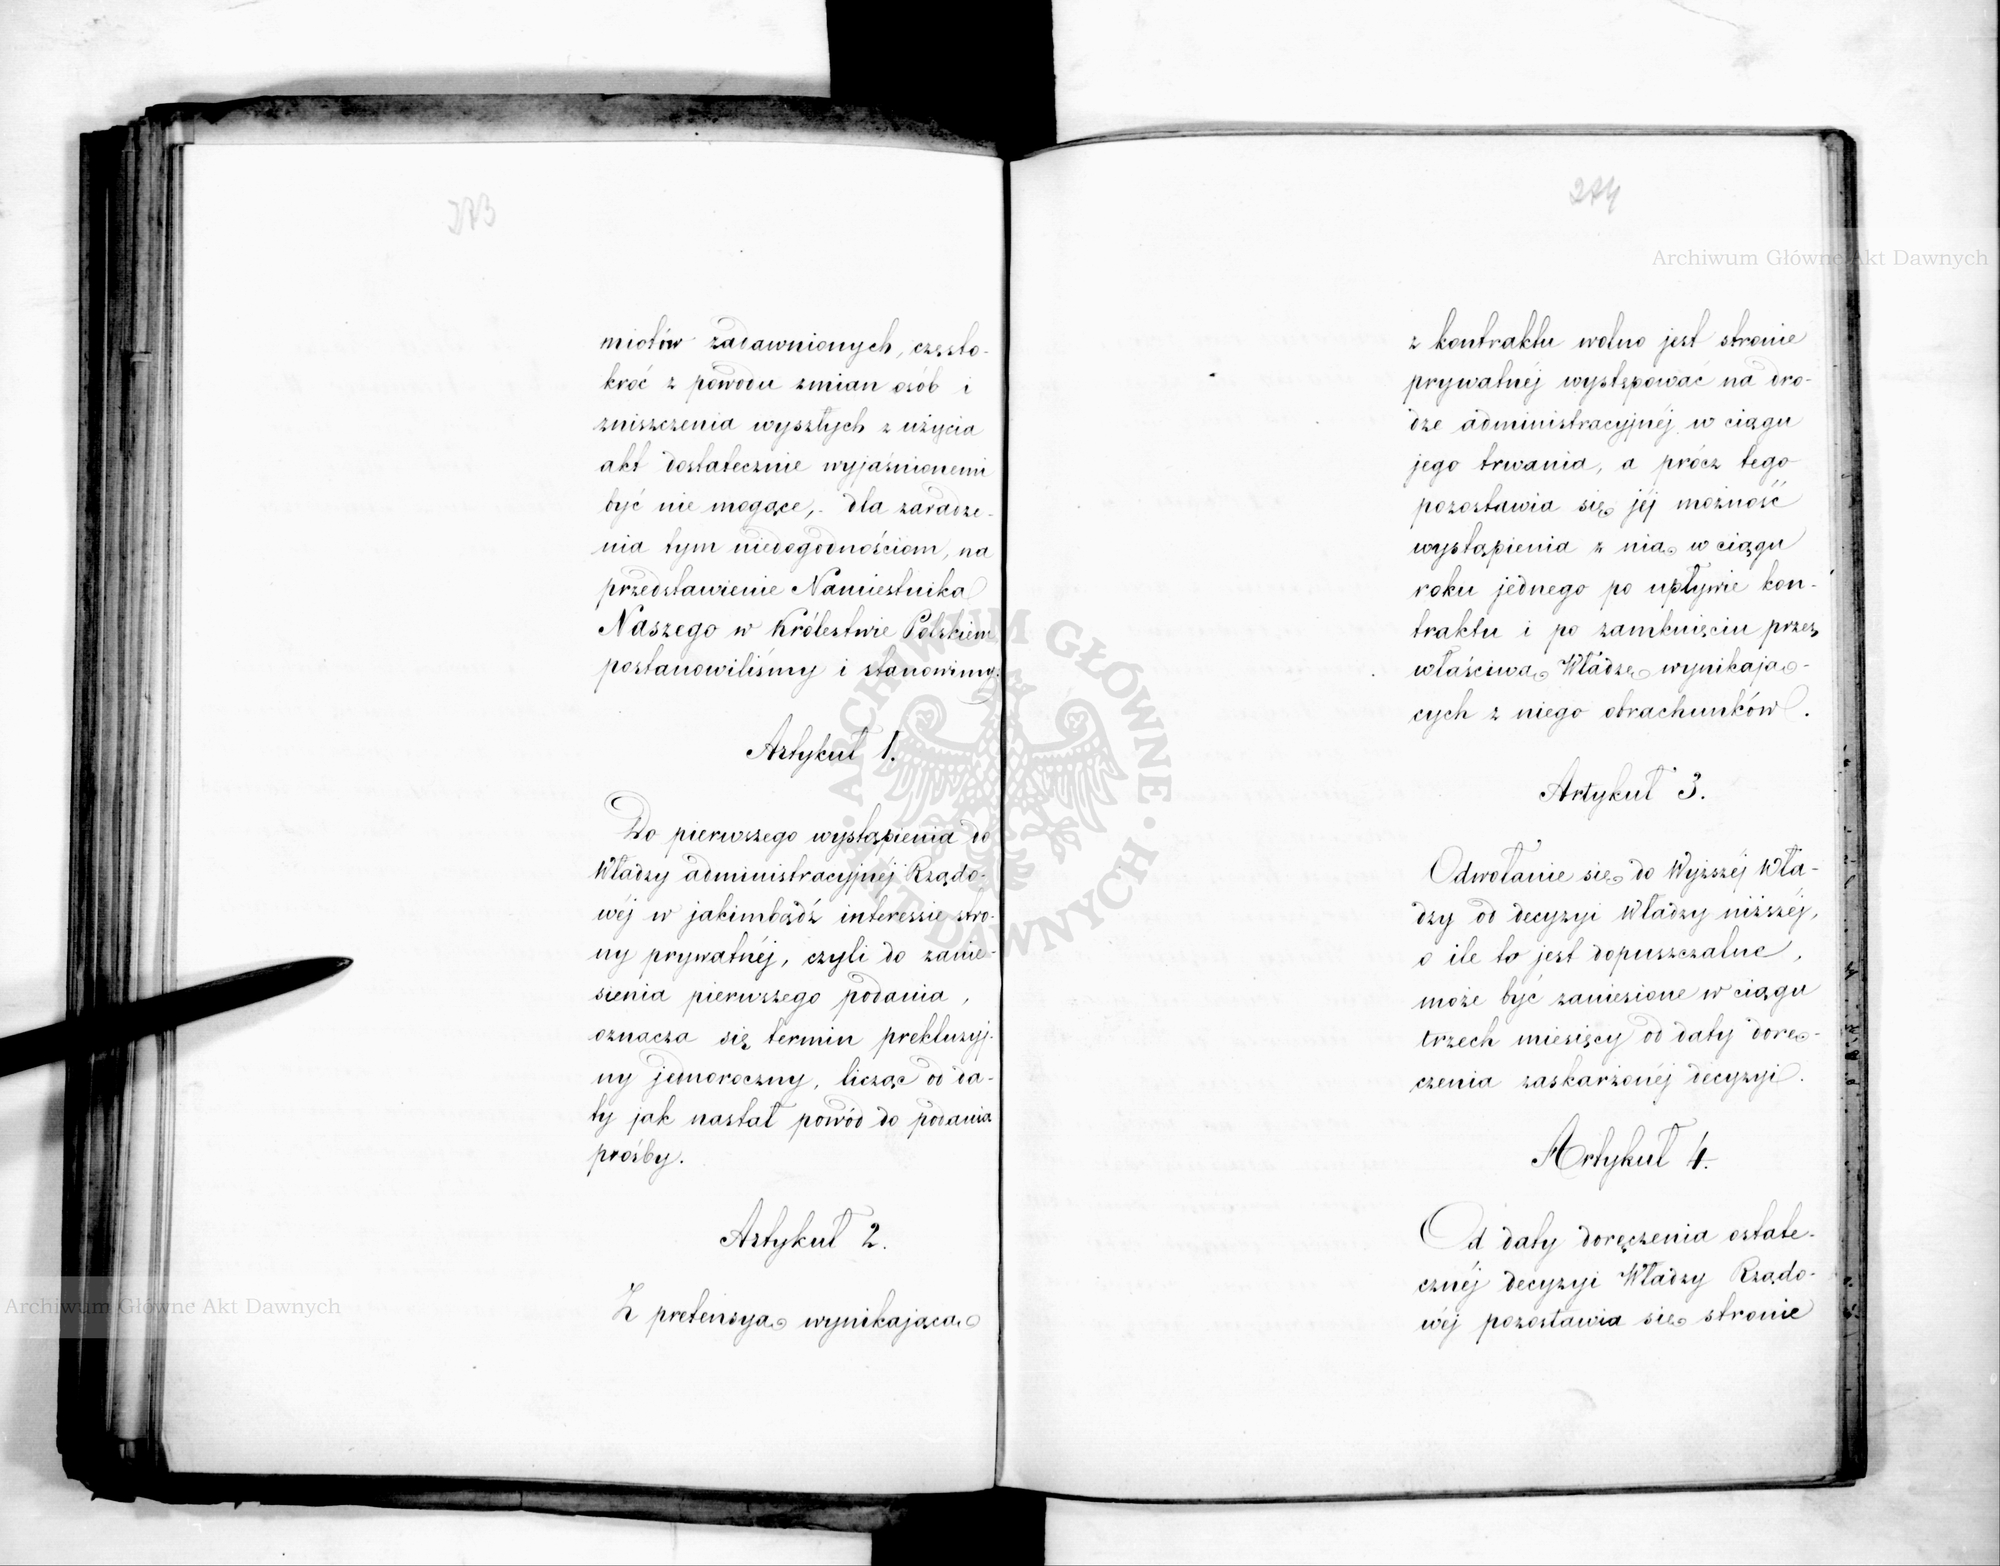 273
miotów zadawnionych, często-
kroć z powodu zmian osób i
zniszczenia wyszłych z użycia
akt dostatecznie wyjaśnionemi
być nie mogące, dla zaradze-
nia tym niedogodnościom, na
przedstawienie Namiestnika
Naszego w Królestwie Polskiem
postanowiliśmy i stanowimy:
Artykuł 1.
Do pierwszego wystąpienia do
Władzy administracyjnéj Rządo-
wéj w jakimbądź interessie stro-
ny prywatnéj, czyli do zanie-
sienia pierwszego podania,
oznacza się termin prekluzyj-
ny jednoroczny, licząc od da-
ty jak nastał powód do podania
prośby.
Artykuł 2.
Z pretensyą wynikającą
274
z kontraktu wolno jest stronie
prywatnéj występować na dro-
dze administracyjnéj w ciągu
jego trwania, a prócz tego
pozostawia się jéj możność
wystąpienia z nią w ciągu
roku jednego po upływie kon-
traktu i po zamknięciu przez
właściwą Władzę wynikają-
cych z niego obrachunków.
Artykuł 3.
Odwołanie się do Wyższéj Wła-
dzy od decyzyi Władzy niższéj,
o ile to jest dopuszczalne,
może być zaniesione w ciągu
trzech miesięcy od daty dorę-
czenia zaskarżonéj decyzyi.
Artykuł 4.
Od daty doręczenia ostate-
cznéj decyzyi Władzy Rządo-
wéj pozostawia się stronie
Archiwum Główne Akt Dawnych
Archiwum Główne Akt Dawnych
ARCHIWUM GŁÓWNE
AKT DAWNYCH